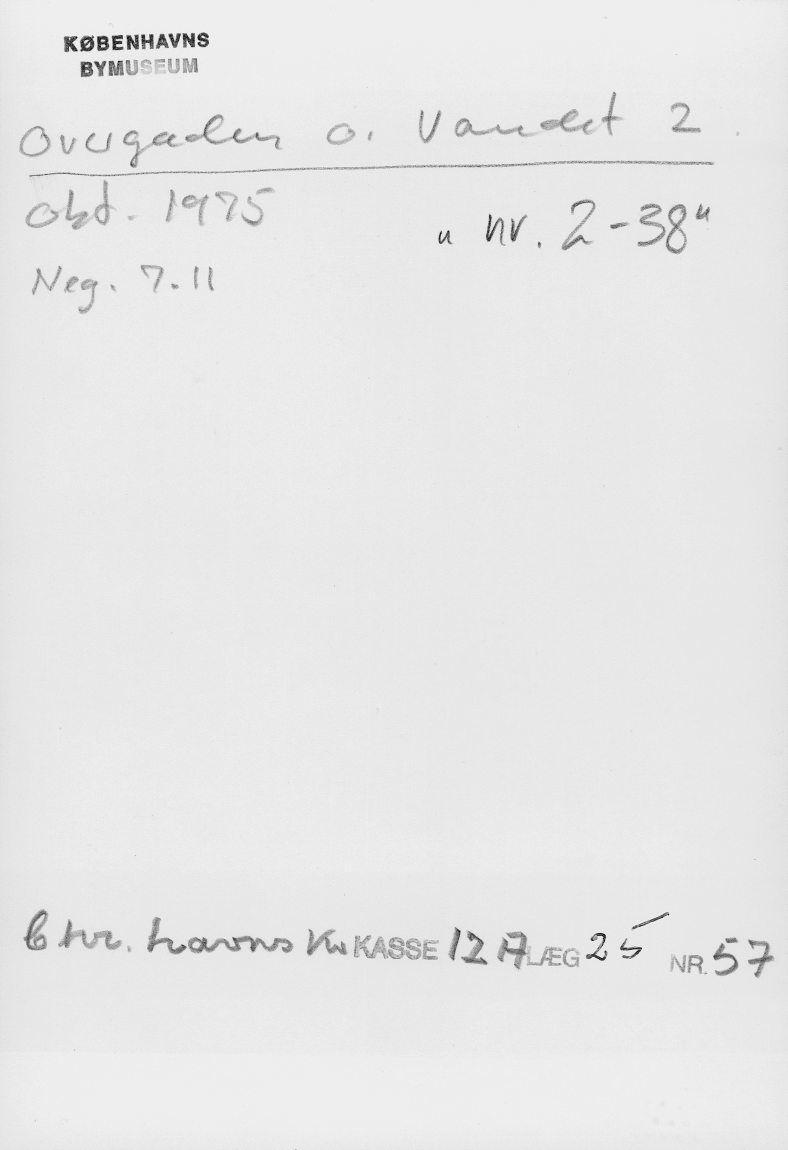 KØBENHAVNS
BYMUSEUM
Overgaden o. Vandet 2.
okt. 1975
"nr. 2-38"
Neg. 7.11
Chr. havns Kv KASSE 12 A LÆG 25 NR. 57